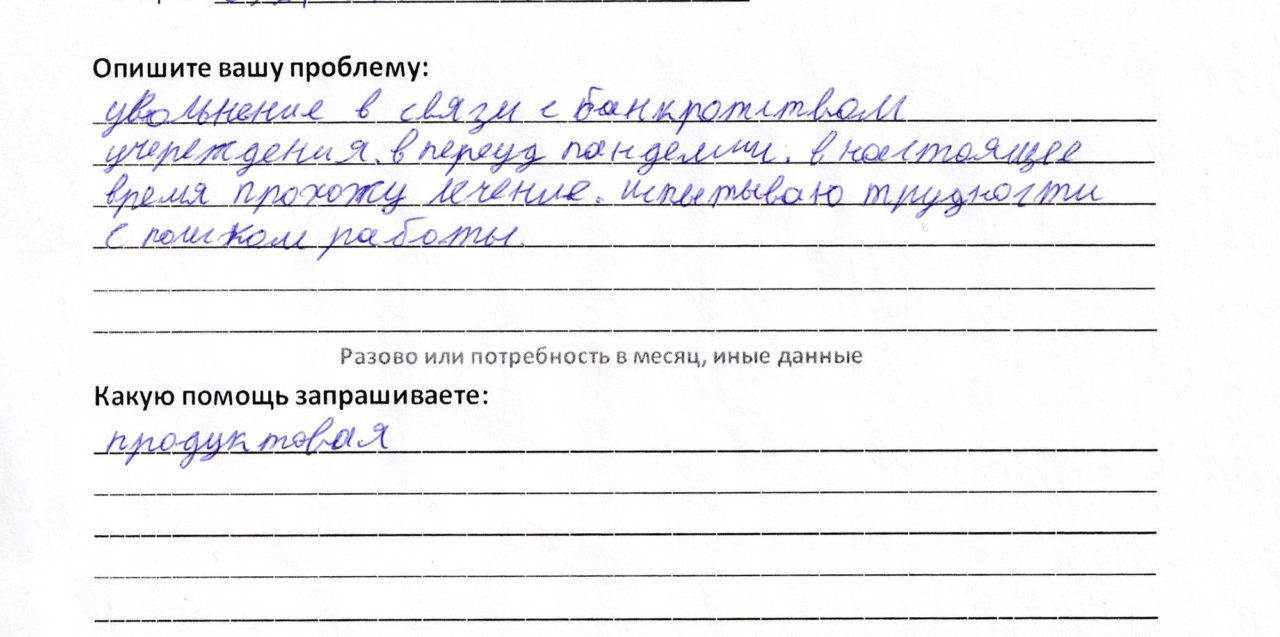 Опишите вашу проблему:
увольнение в связи с банкротством
учереждения. в переуд пандемии. в настоящее
время прохожу лечение. испытываю трудности
с поиском работы.
Разово или потребность в месяц, иные данные
Какую помощь запрашиваете:
продуктовая